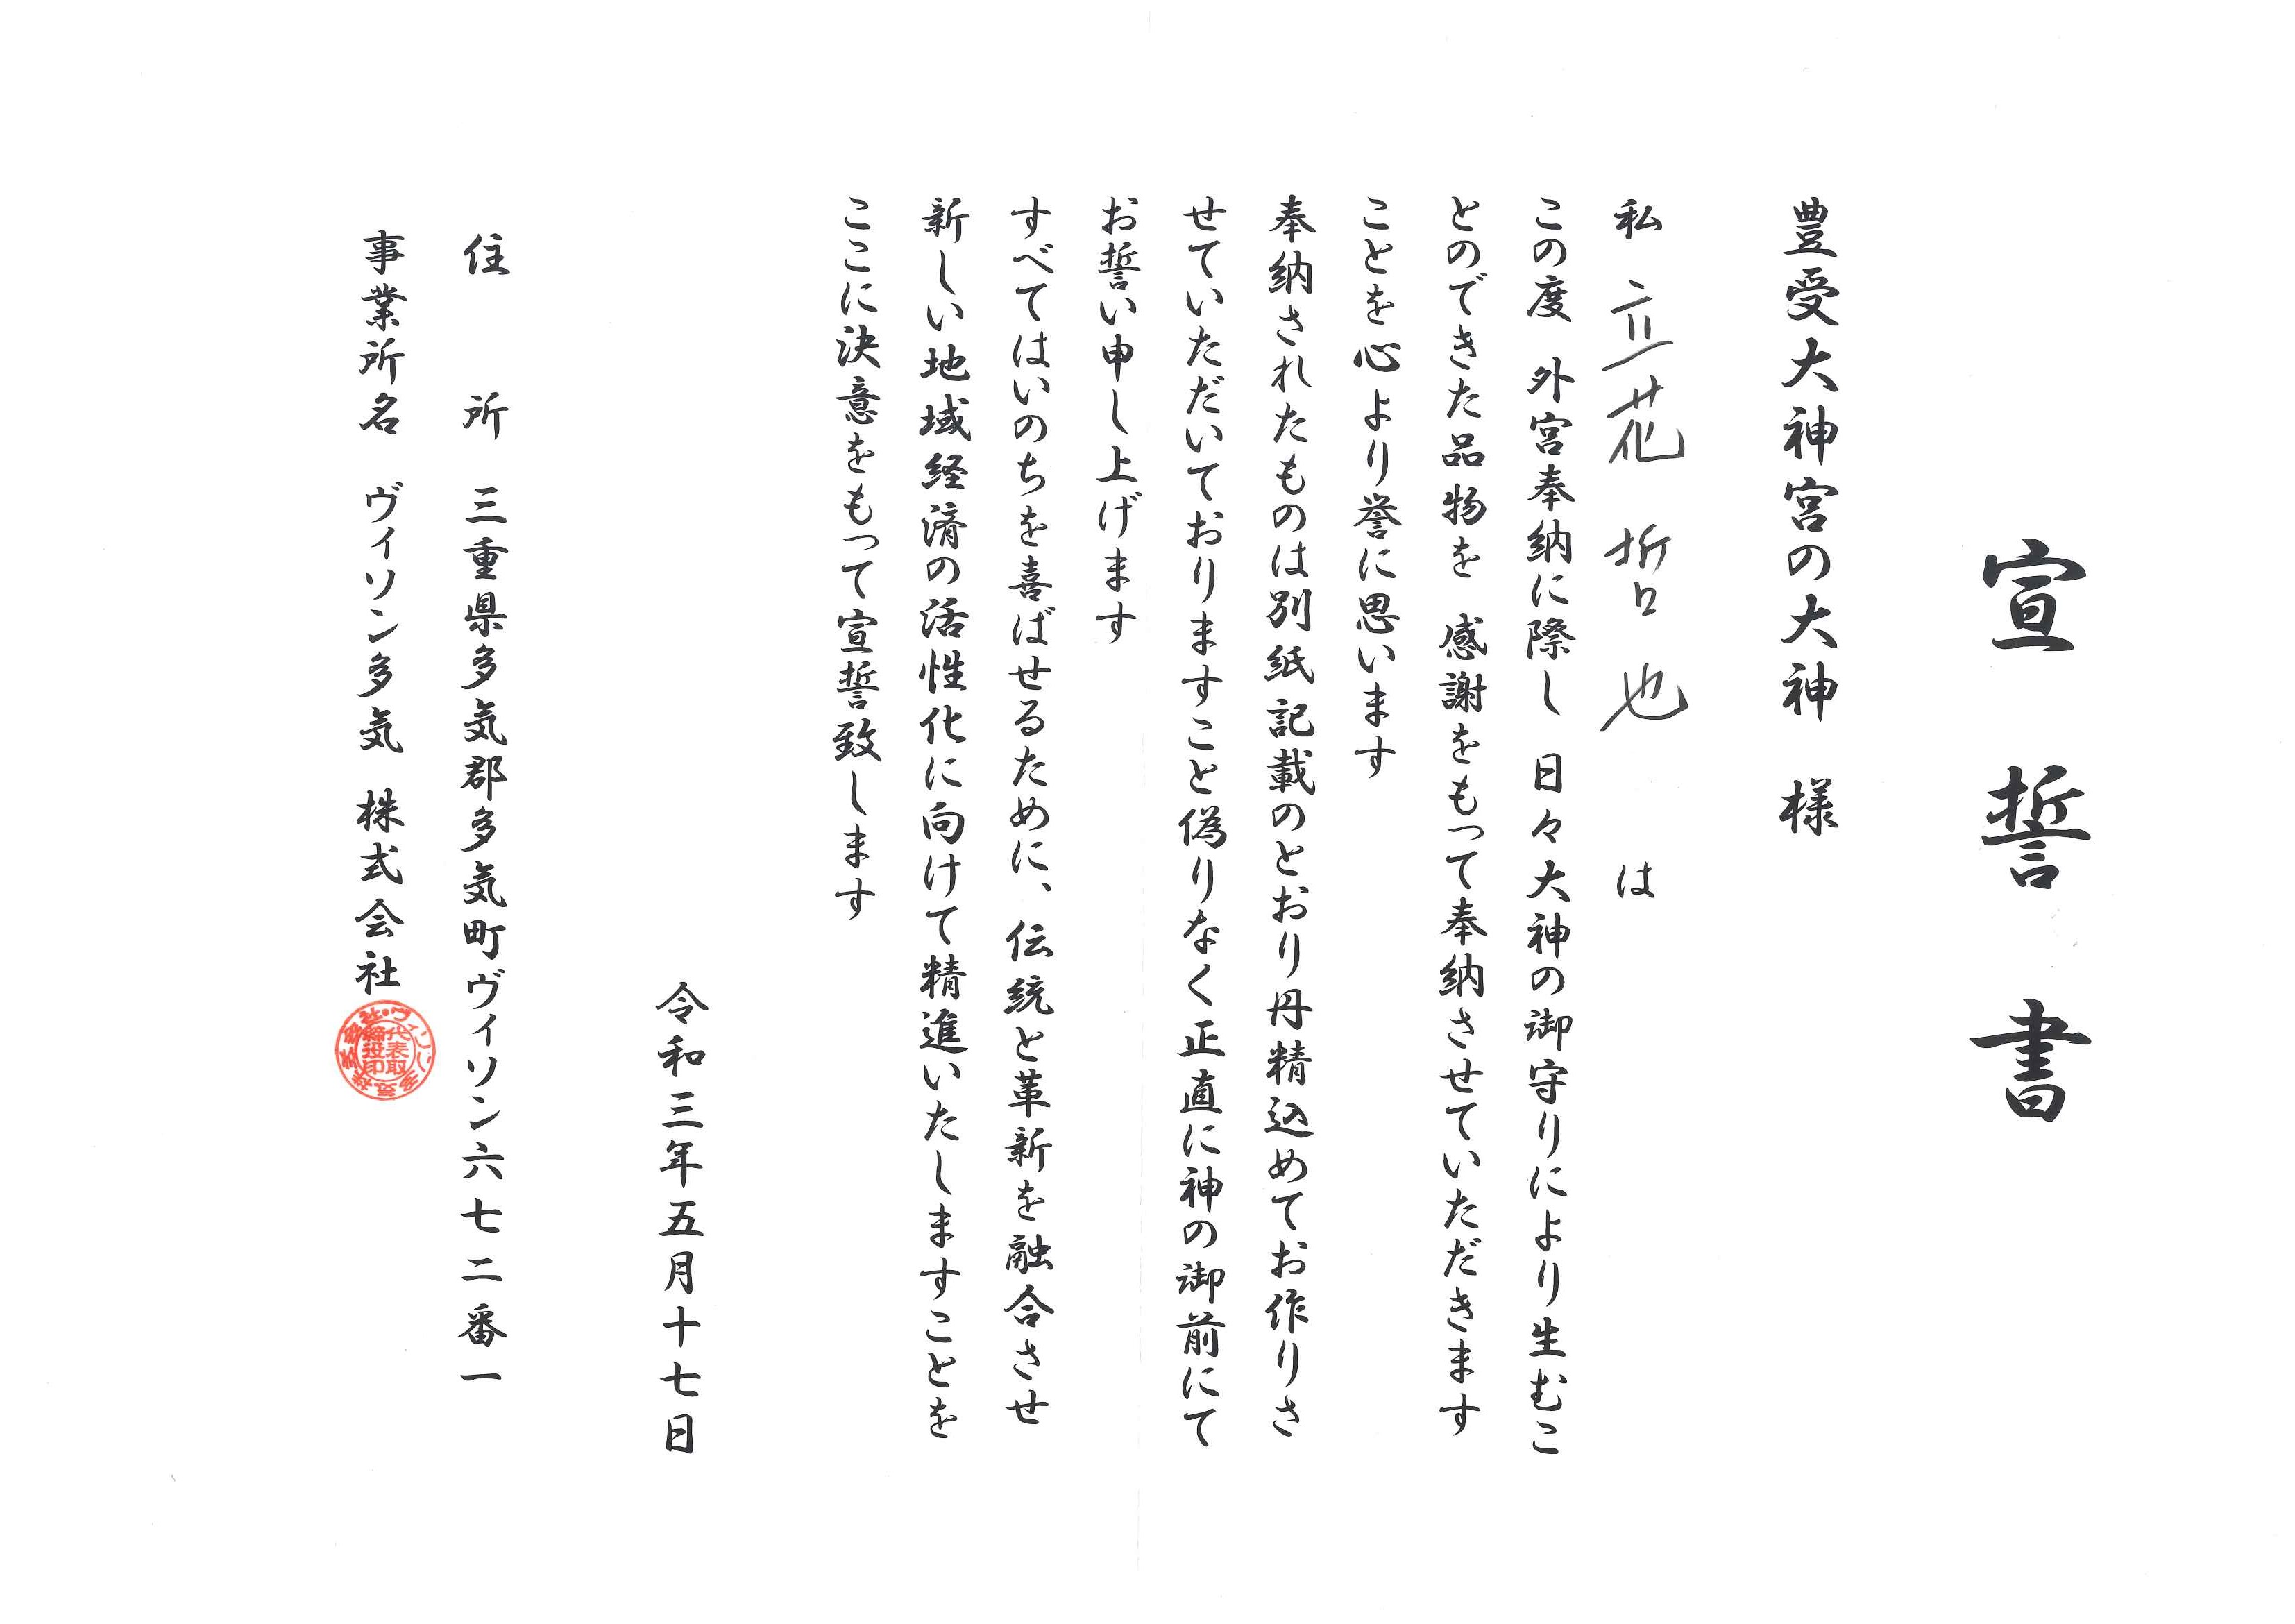 宣誓書
豊受大神宮の大神 様
私 立花 哲也 は
この度 外宮奉納に際し 日々大神の御守りにより生むこ
とのできた品物を 感謝をもって奉納させていただきます
ことを心より誉に思います
奉納されたものは別紙記載のとおり丹精込めてお作りさ
せていただいておりますこと偽りなく正直に神の御前にて
お誓い申し上げます
すべてはいのちを喜ばせるために、伝統と革新を融合させ
新しい地域経済の活性化に向けて精進いたしますことを
ここに決意をもって宣誓致します
令和三年五月十七日
住 所 三重県多気郡多気町ヴィソン六七二番一
事業所名 ヴィソン多気 株式会社
ヴィソン多気株式会社
代表取
締役印